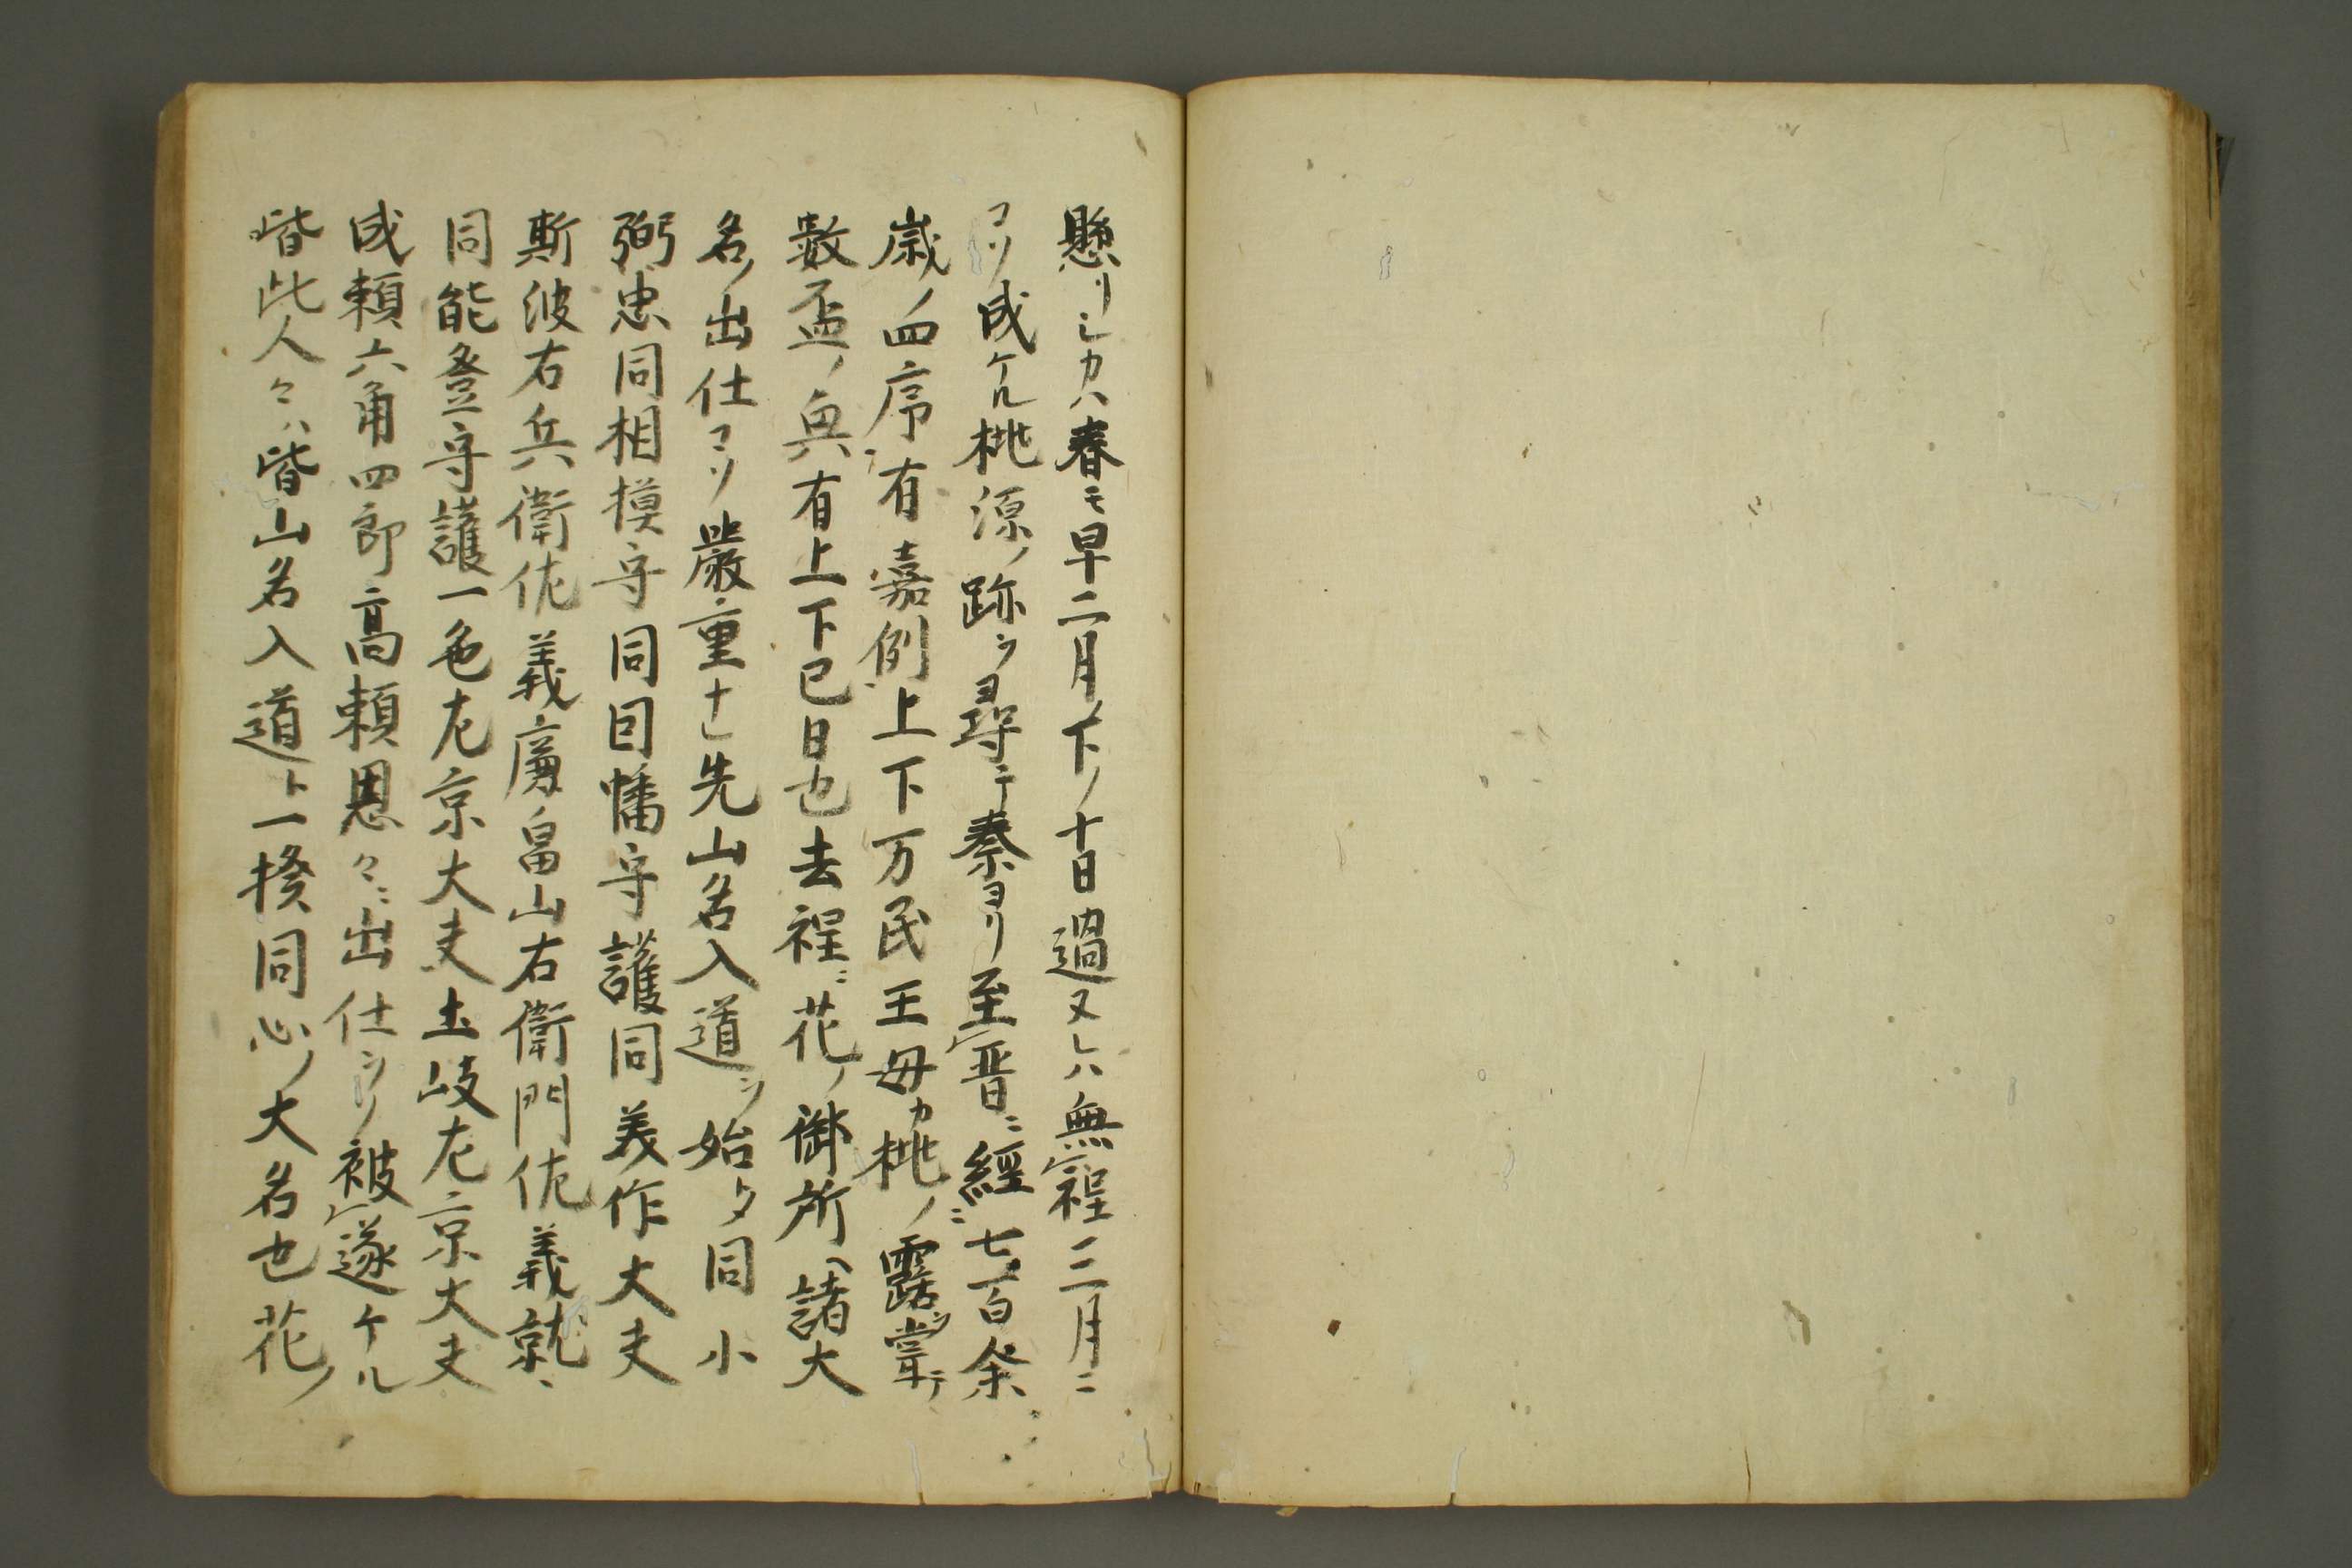 懸リシカハ春モ早二月下ノ十日過ヌレハ無程三月ニ
コソ成ケル桃源ノ跡ヲ尋テ秦ヨリ至晋ニ經ニ七百余
歳ノ四序有嘉例上下万民王母カ桃ノ露ヲ甞テ
数盃ノ興有上下巳日也去程ニ花ノ御所ヘ諸大
名ノ出仕コソ嚴重ナレ先山名入道ヲ始タ同小
弼忠同相摸守同因幡守護同美作大夫
斯波右兵衛佐義廉畠山右衛門佐義就
同能登守護一色左京大夫土岐左京大夫
成頼六角四郎高頼思々ニ出仕ヲソ被遂ケル
皆此人々ハ皆山名入道ト一揆同心ノ大名也花ノ